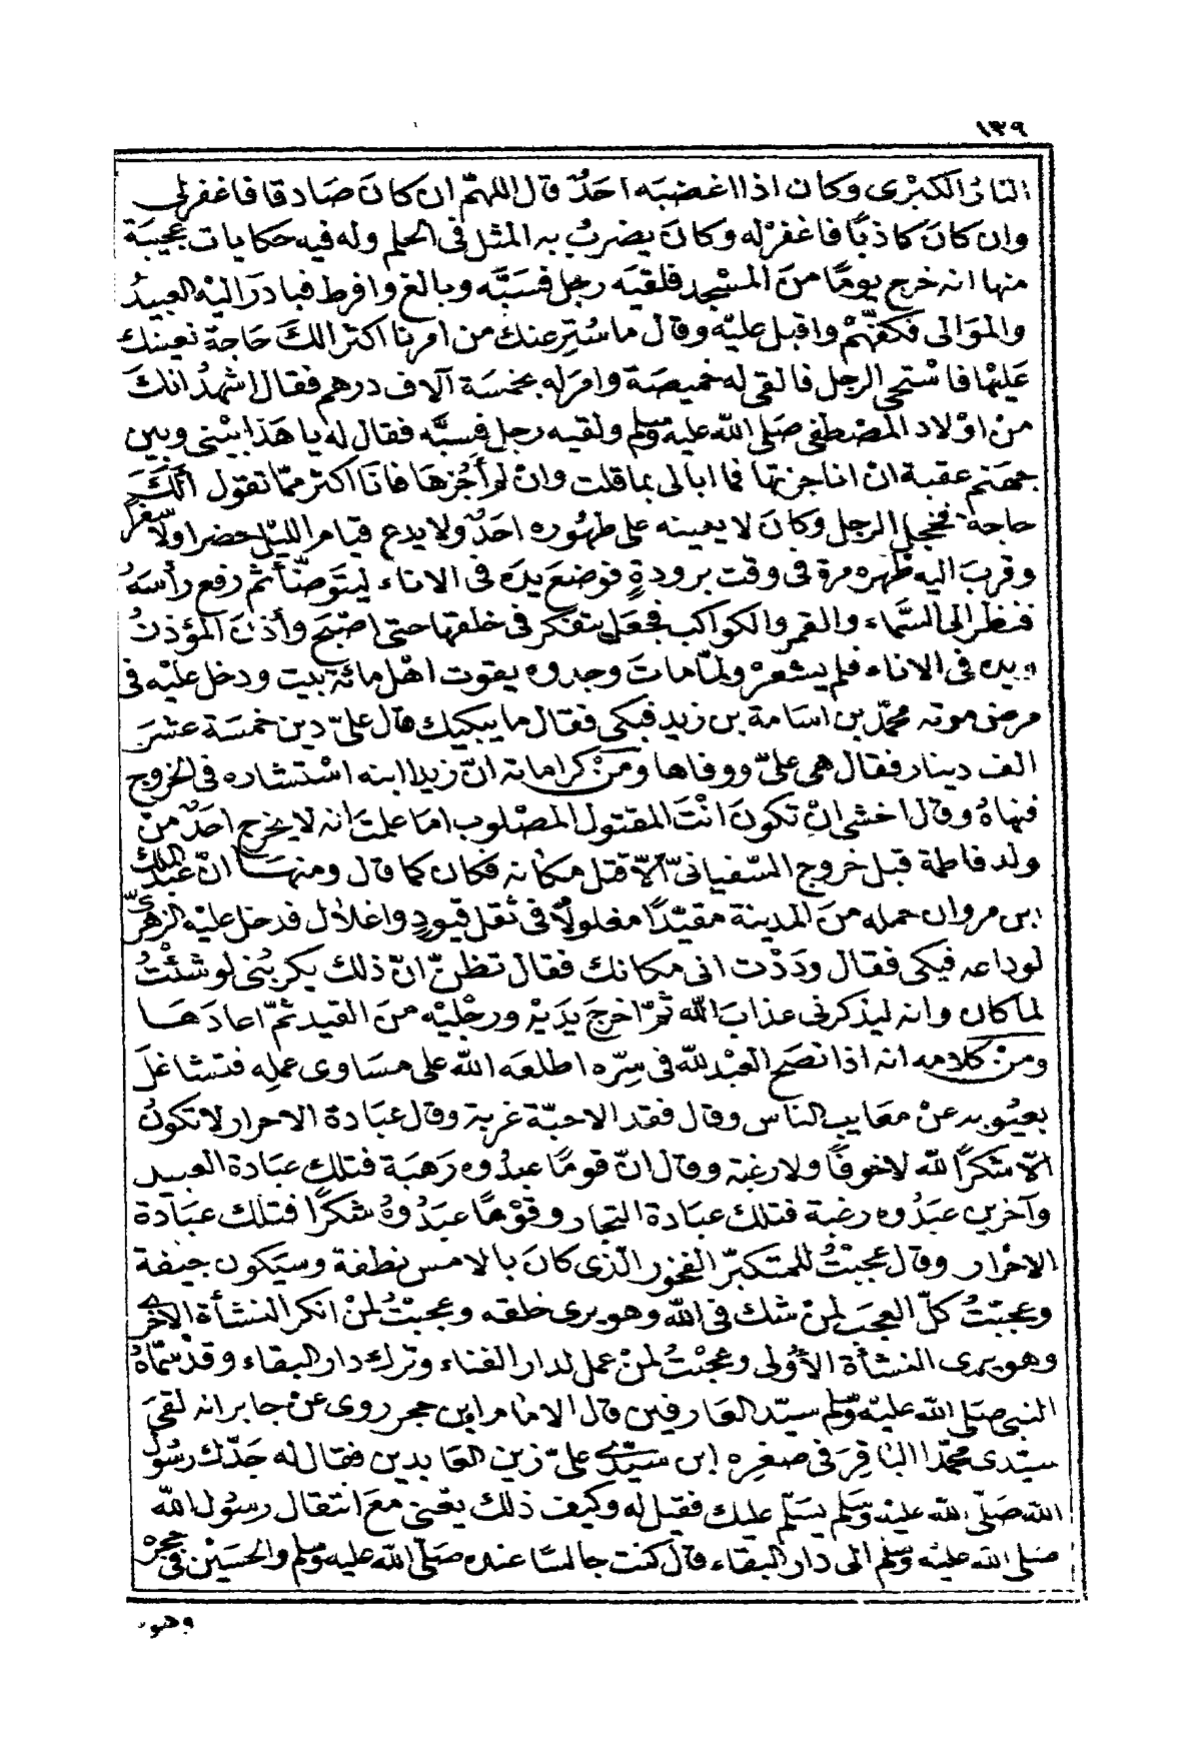 ١٣٩
النار الكبرى وكان اذا اغضبه احدٌ قال اللهمّ ان كان صَادقا فاغفرلى
وان كانَ كاذبًا فاغفرْ له وكانَ يضربُ به المثل فى الحلم وله فيه حكايات عجيبَة
منها انه خرج يومًا منَ المسْجد فلقيَه رجل فسَبَّه وبالغ وافرط فبادرَ اليْه العبيدُ
والموَالى فكفّهمْ واقبل عليْه وقال ما سُتِر عنك من امرنا اكثر الكَ حَاجة نعينك
عَليْها فاسْتحى الرجل فالقى له خميصَة وامرَ له بخمسَة آلاف درهم فقال اشهدُ انكَ
منْ اوْلاد المصْطفى صَلى الله عليْه وَسَلم ولقيه رجل فسبَّه فقال له يا هَذا بيْنى وبين
جهَنم عقبة انْ اناجزتها فما ابالى بما قلت وانْ لم أجُزهَا فانَا اكثر ممّا تقول ألكَ
حاجة فخجل الرجل وكانَ لا يعينه على طهُوره احَدٌ ولا يدع قيام الليْل حضرا ولا سفرًا
وقربَ اليه طهره مرة فى وقت برودةٍ فوضعَ يدَه فى الاناء ليتَوضّأ ثم رفع رأسَهُ
فنظر الى السَّماء والقمر والكواكب فجعَل يتفكر فى خلقها حتى اصْبَح وأذنَ المؤذنُ
ويده فى الاناء فلم يشعرْ ولمّا ماتَ وجدوه يقوت اهْل مائة بيت ودخل عليْه فى
مرض موته محمّد بن اسَامة بن زيد فبكى فقال ما يبكيك قال علىّ دين خمسَة عشرَ
الف دينار فقال هى علىّ ووفاها ومنْ كراماته انّ زيدا ابنه اسْتشاره فى الخروج
فنهاهُ وقال اخشى انْ تكونَ انْتَ المقتول المصْلوب اما علمتَ انه لا يخرج احَدٌ منْ
ولد فاطمة قبل خروج السّفيانىّ الّا قتل مكانه فكان كما قال ومنهَا انّ عبْد الملك
ابن مروان حمله منَ المدينة مقيّدًا مغلولًا فى ثقل قيودٍ واغلال فدخل عليْه الزهرىّ
لوداعه فبكى فقال ودَدْت انى مكانك فقال تظنّ انّ ذلك يكربُنى لو شئْتُ
لما كان وانه ليذكرنى عذابَ الله ثمّ اخرجَ يدَيْه ورجْليْه منَ القيد ثمّ اعادَهَا
ومنْ كلامه انه اذا نصَح العبْد لله فى سِرّه اطلعَه الله على مسَاوى عمله فتشاغلَ
بعيُوبه عنْ معَايب الناس وقال فقد الاحبّة غربة وقال عبَادة الاحرار لا تكونُ
الّا شكرًا لله لا خوفًا ولا رغبَة وقال انّ قومًا عبدُوه رَهبَة فتلك عبَادة العبيد
وآخرين عبَدُوه رغبة فتلك عبَادة التجار وقوْمًا عبَدُوهُ شكرًا فتلك عبَادة
الاحْرار وقال عجبْتُ للمتكبرّ الفخور الّذى كانَ بالامس نطفة وسيَكون جيفة
وعجبْتُ كلّ العجَب لمنْ شك فى الله وهو يرى خلقه وعجبْتُ لمنْ انكر النشأة الاخرى
وهو يرى النشأة الأولى وعجبْتُ لمنْ عمل لدار الفناء وترك دار البقاء وقدْ سمّاهُ
النبى صَلى الله عليْه وَسَلم سيّد العَارفين قال الامَام ابن حجر روى عنْ جابر انه لقىَ
سيّدى محمّدا البَاقِرَ فى صغره ابن سيّدى علىّ زين العَابدين فقال له جَدّك رسُول
الله صَلّى الله عليْه وَسَلم يسَلّم عليك فقيل له وكيف ذلك يعْنى معَ انتقال رسُول الله
صَلى الله عليْه وَسَلم الى دار البقاء قال كنت جالسًا عنده صَلّى الله عليه وَسَلم والحسَيْن فى حجره
وهو